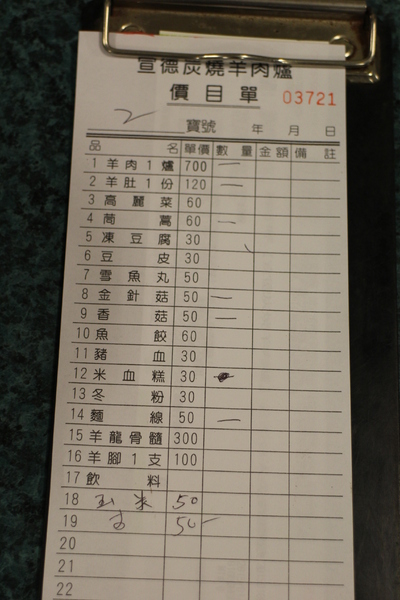 宣德炭燒羊肉爐
價目單 03721
2 寶號 年 月 日
品名 單價 數量 金額 備註
1 羊肉1爐 700 一
2 羊肚1份 120 一
3 高麗菜 60
4 茼蒿 60 一
5 凍豆腐 30
6 豆皮 30
7 雪魚丸 50
8 金針菇 50 一
9 香菇 50 一
10 魚餃 60
11 豬血 30
12 米血糕 30
13 冬粉 30
14 麵線 50 一
15 羊龍骨髓 300
16 羊腳1支 100
17 飲料
18 玉米 50
19 50-
20
21
22